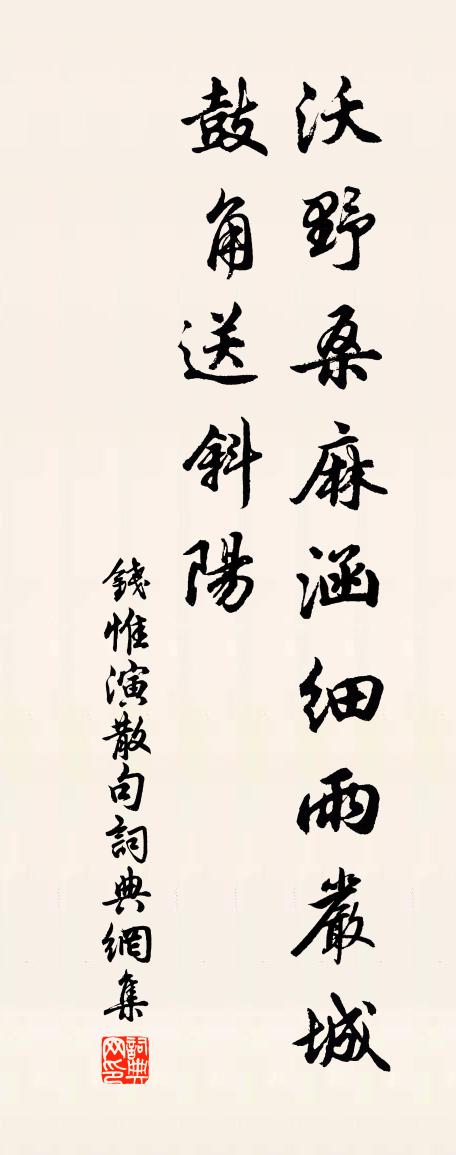 沃野桑麻涵細雨嚴城
鼓角送斜陽
錢惟演散句詞典網集
詞典网印